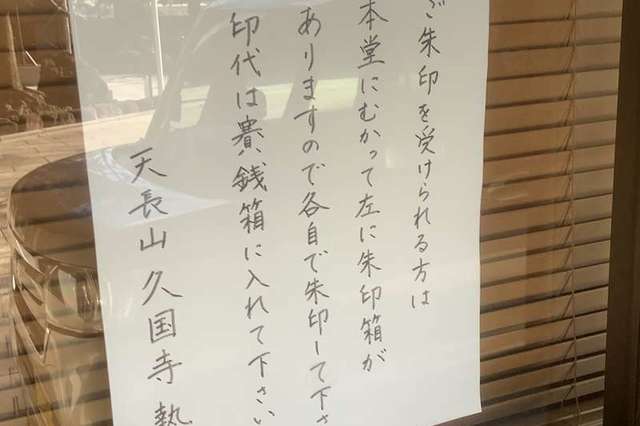 ご朱印を受けられる方は
本堂にむかって左に朱印箱が
ありますので各自で朱印して下さ
印代は賽銭箱に入れて下さい
天長山久国寺